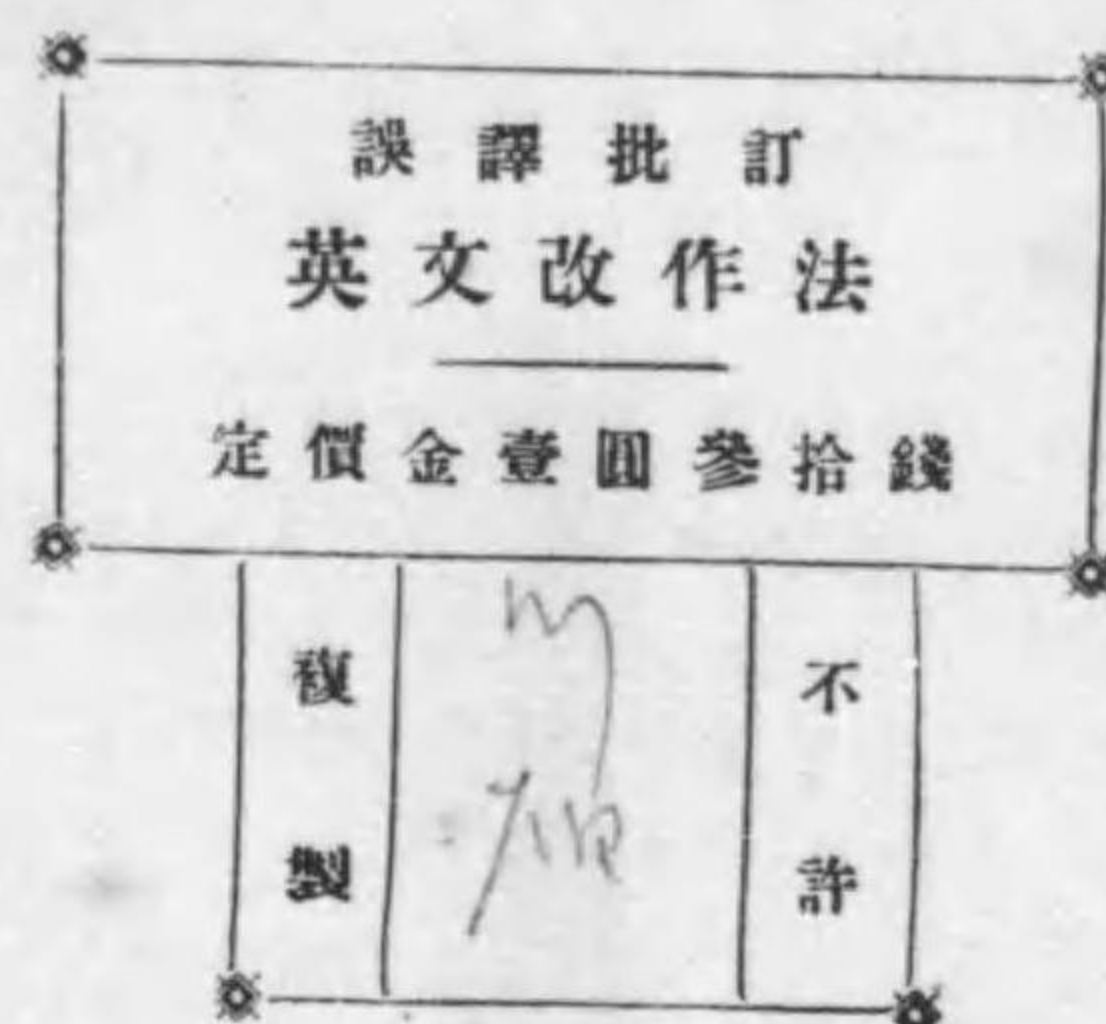 誤譯批訂
英文改作法
定價金壹圓參拾錢
不許
複製